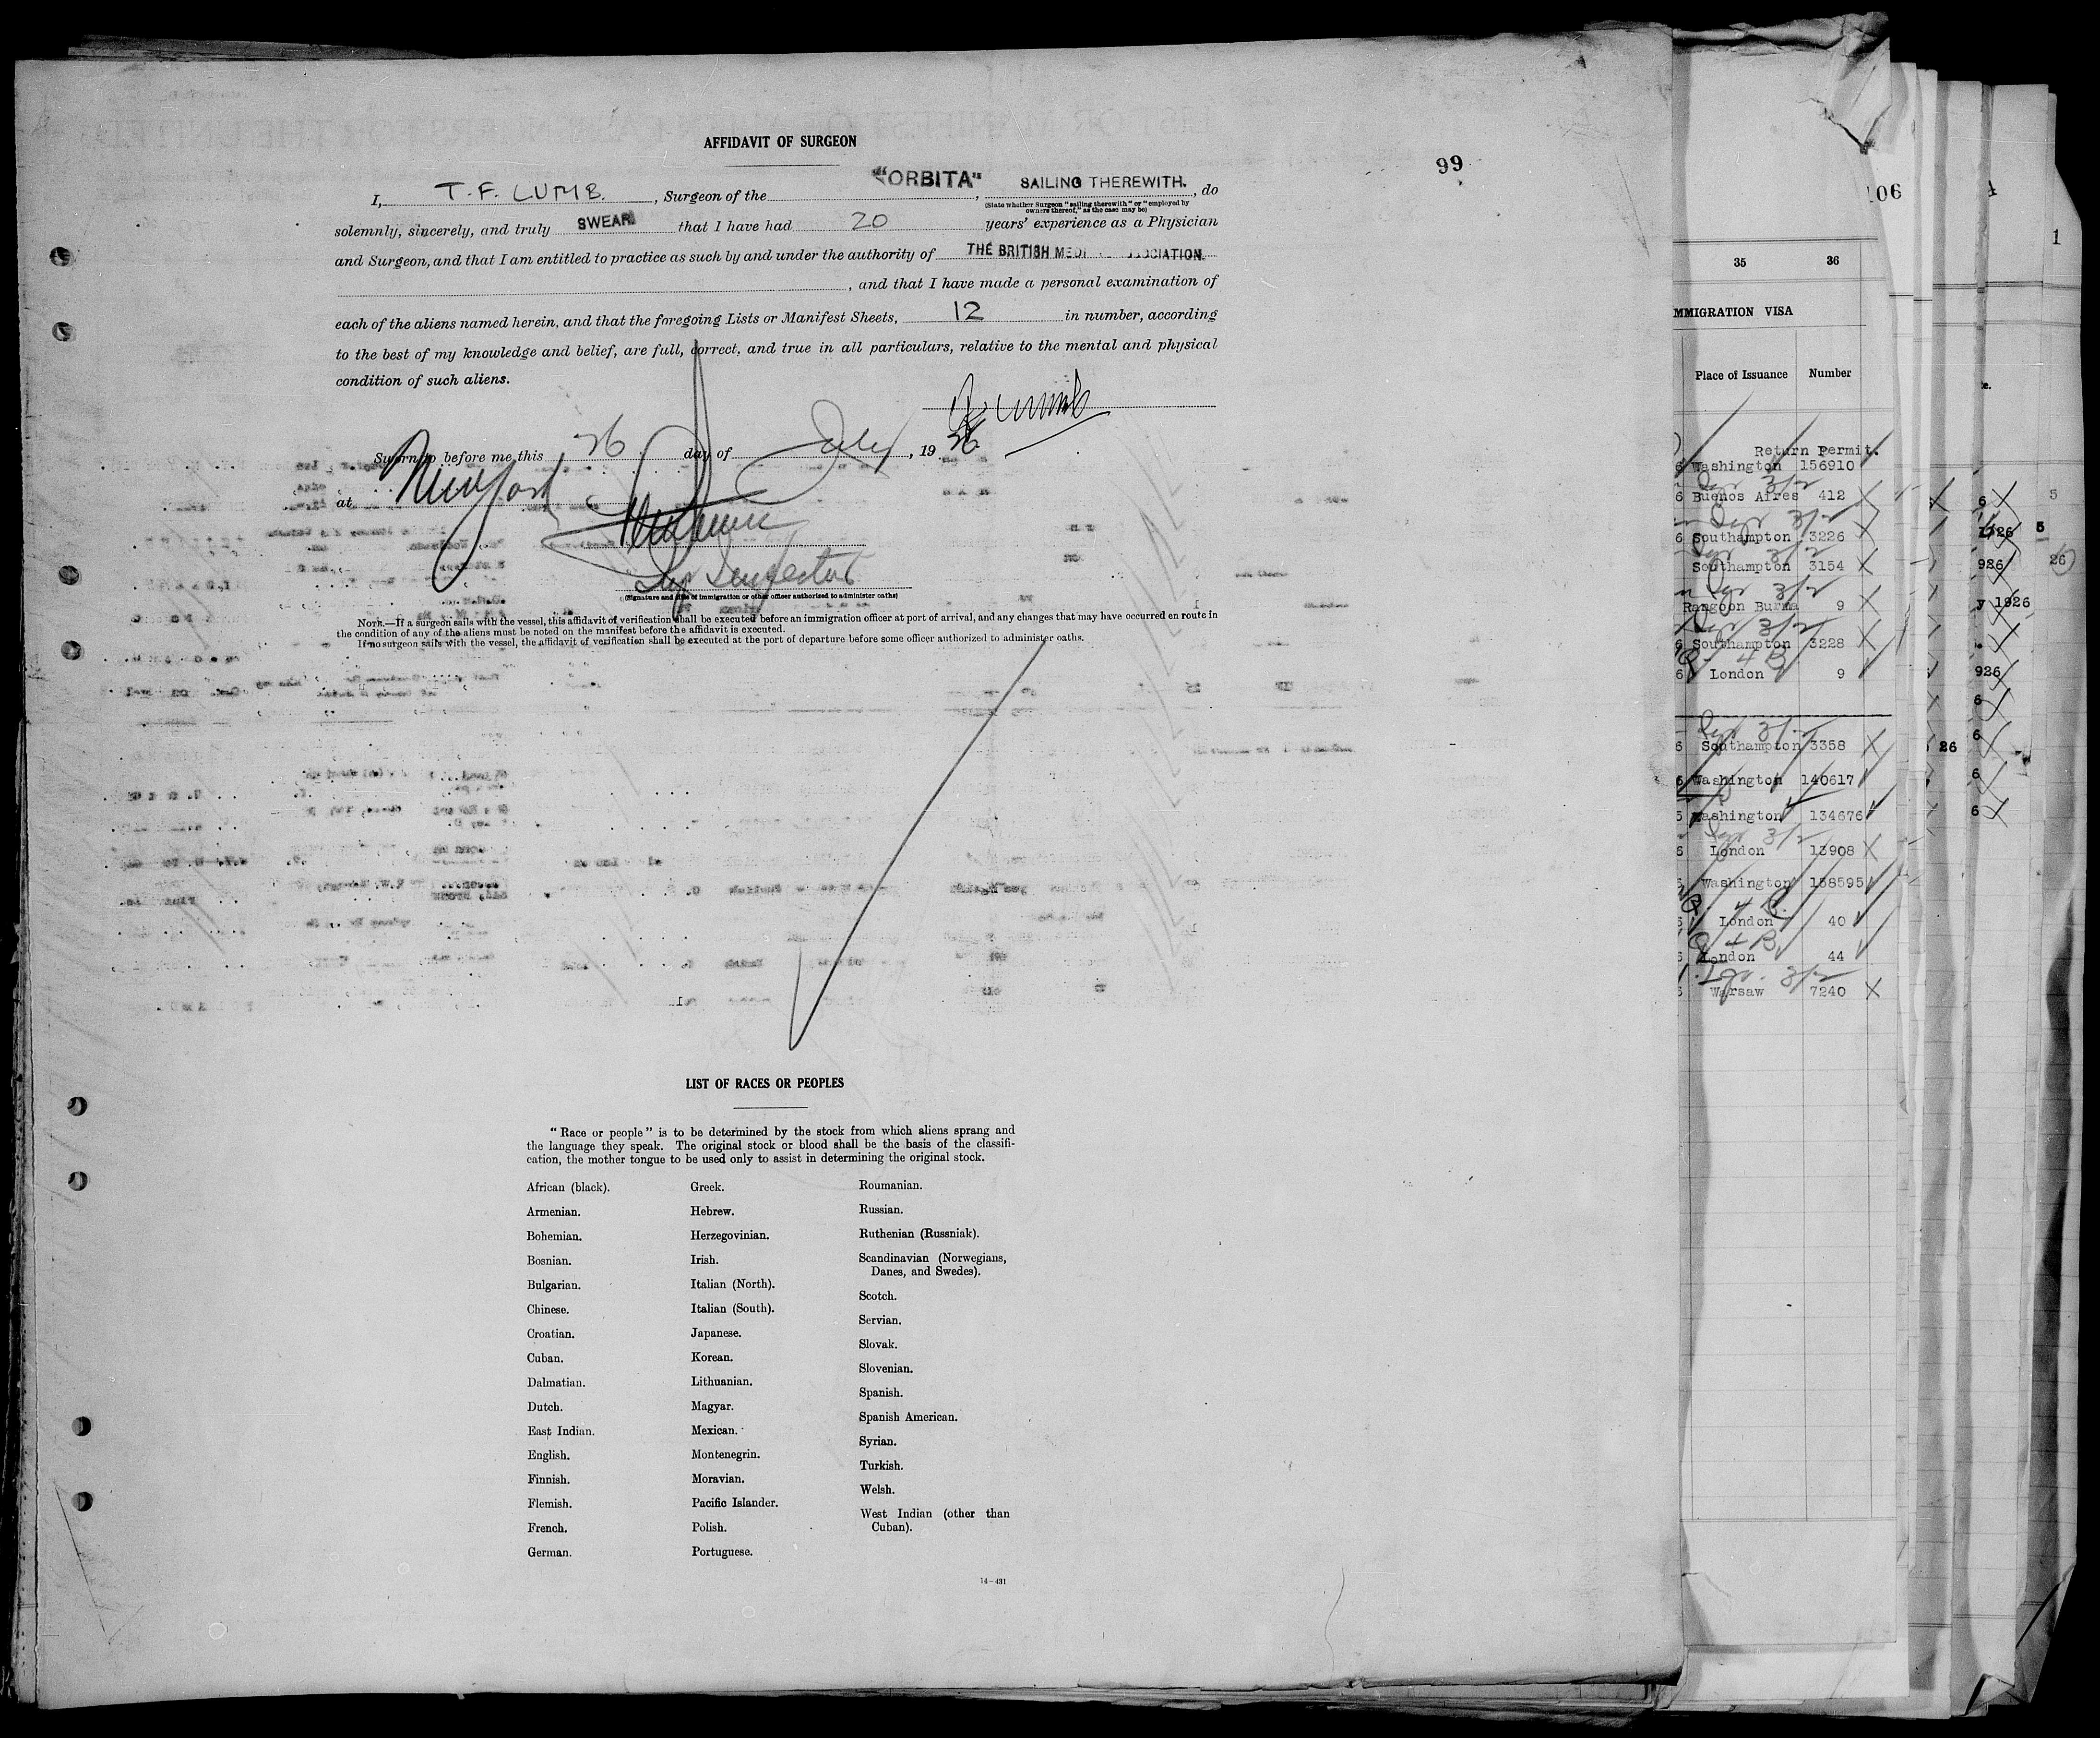 AFFIDAVIT OF SURGEON
99
I, T. F. LUMB. , Surgeon of the "ORBITA" , SAILING THEREWITH. , do
(State whether Surgeon "sailing therewith" or "employed by
owners thereof," as the case may be)
solemnly, sincerely, and truly SWEAR that I have had 20 years' experience as a Physician
and Surgeon, and that I am entitled to practice as such by and under the authority of THE BRITISH
, and that I have made a personal examination of
each of the aliens named herein, and that the foregoing Lists or Manifest Sheets, 12 in number, according
to the best of my knowledge and belief, are full, correct, and true in all particulars, relative to the mental and physical
condition of such aliens.
Lumb
Sworn to before me this 26 day of July , 19 26
at New York
Inspector
(Signature and title of immigration or other officer authorized to administer oaths)
NOTE.—If a surgeon sails with the vessel, this affidavit of verification shall be executed before an immigration officer at port of arrival, and any changes that may have occurred en route in
the condition of any of the aliens must be noted on the manifest before the affidavit is executed.
If no surgeon sails with the vessel, the affidavit of verification shall be executed at the port of departure before some officer authorized to administer oaths.
LIST OF RACES OR PEOPLES
"Race or people" is to be determined by the stock from which aliens sprang and
the language they speak. The original stock or blood shall be the basis of the classifi-
cation, the mother tongue to be used only to assist in determining the original stock.
African (black).
Armenian.
Bohemian.
Bosnian.
Bulgarian.
Chinese.
Croatian.
Cuban.
Dalmatian.
Dutch.
East Indian.
English.
Finnish.
Flemish.
French.
German.
Greek.
Hebrew.
Herzegovinian.
Irish.
Italian (North).
Italian (South).
Japanese.
Korean.
Lithuanian.
Magyar.
Mexican.
Montenegrin.
Moravian.
Pacific Islander.
Polish.
Portuguese.
Roumanian.
Russian.
Ruthenian (Russniak).
Scandinavian (Norwegians,
Danes, and Swedes).
Scotch.
Servian.
Slovak.
Slovenian.
Spanish.
Spanish American.
Syrian.
Turkish.
Welsh.
West Indian (other than
Cuban).
14-431
06
35 36
MMIGRATION VISA
Place of Issuance Number
Return Permit.
6 Washington 156910
6 Buenos Aires 412
6 Southampton 3226
Southampton 3154
Rangoon Burma 9
6 Southampton 3228
6 London 9
6 Southampton 3358
6 Washington 140617
5 Washington 134676
6 London 13908
Washington 158595
6 London 40
6 London 44
Warsaw 7240
4
26
1
6
5
1926
5
926
26
y 1926
926
6
6
6
6